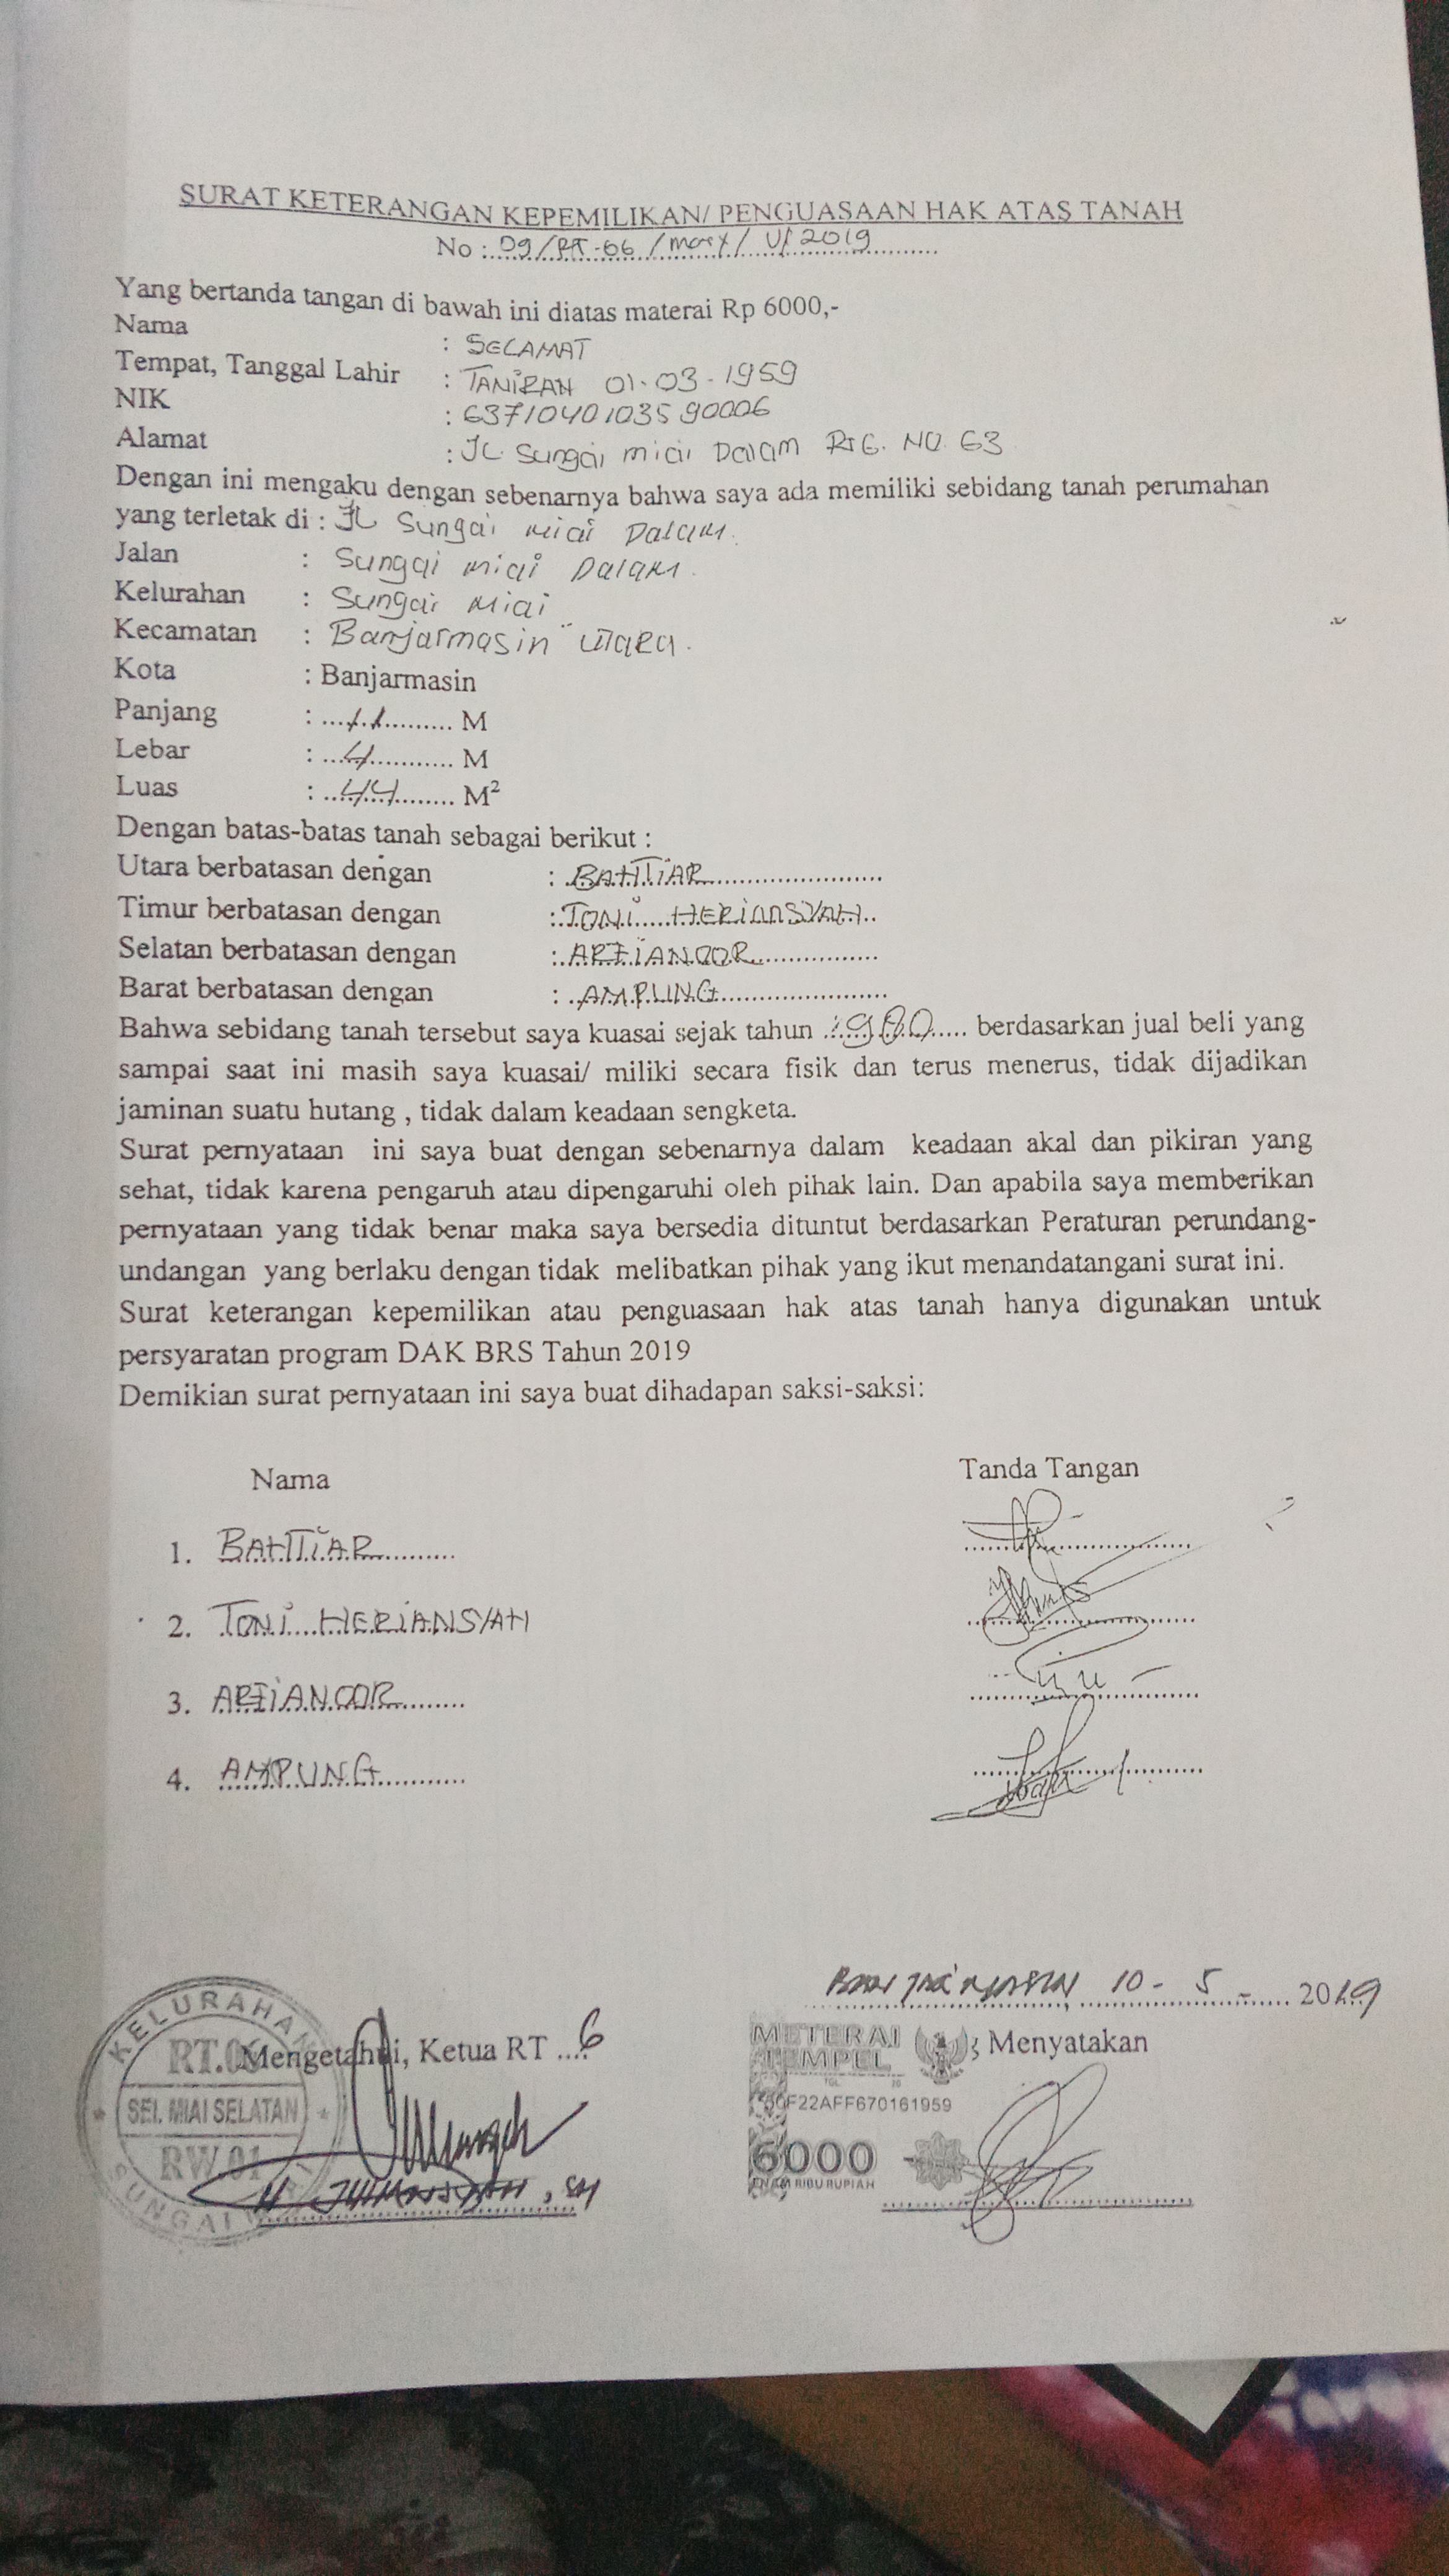 SURAT KETERANGAN KEPEMILIKAN/ PENGUASAAN HAK ATAS TANAH
No : 09/RT-06 / / V/ 2019
Yang bertanda tangan di bawah ini diatas materai Rp 6000,-
Nama : SELAMAT
Tempat, Tanggal Lahir : TANIRAN 01-03-1959
NIK : 6371040103590006
Alamat : JL. Sungai miai Dalam Rt 6. NO. 63
Dengan ini mengaku dengan sebenarnya bahwa saya ada memiliki sebidang tanah perumahan
yang terletak di : JL Sungai miai Dalam.
Jalan : Sungai miai Dalam.
Kelurahan : Sungai Miai
Kecamatan : Banjarmasin Utara.
Kota : Banjarmasin
Panjang : ....11.......... M
Lebar : ...4............ M
Luas : ...44......... M²
Dengan batas-batas tanah sebagai berikut :
Utara berbatasan dengan : BAHTIAR
Timur berbatasan dengan : TONI HERIANSYAH
Selatan berbatasan dengan : ARFIANOOR
Barat berbatasan dengan : AMPUNG
Bahwa sebidang tanah tersebut saya kuasai sejak tahun 1980 berdasarkan jual beli yang
sampai saat ini masih saya kuasai/ miliki secara fisik dan terus menerus, tidak dijadikan
jaminan suatu hutang , tidak dalam keadaan sengketa.
Surat pernyataan ini saya buat dengan sebenarnya dalam keadaan akal dan pikiran yang
sehat, tidak karena pengaruh atau dipengaruhi oleh pihak lain. Dan apabila saya memberikan
pernyataan yang tidak benar maka saya bersedia dituntut berdasarkan Peraturan perundang-
undangan yang berlaku dengan tidak melibatkan pihak yang ikut menandatangani surat ini.
Surat keterangan kepemilikan atau penguasaan hak atas tanah hanya digunakan untuk
persyaratan program DAK BRS Tahun 2019
Demikian surat pernyataan ini saya buat dihadapan saksi-saksi:
Nama Tanda Tangan
1. BAHTIAR
2. TONI HERIANSYAH
3. ARFIANOOR
4. AMPUNG
Banjarmasin 10 - 5 - 2019
Mengetahui, Ketua RT .... 6
Menyatakan
KELURAHAN
RT.06
SEI. MIAI SELATAN
RW 01
SUNGAI
METERAI
TEMPEL
TGL. 20
F22AFF670161959
6000
ENAM RIBU RUPIAH